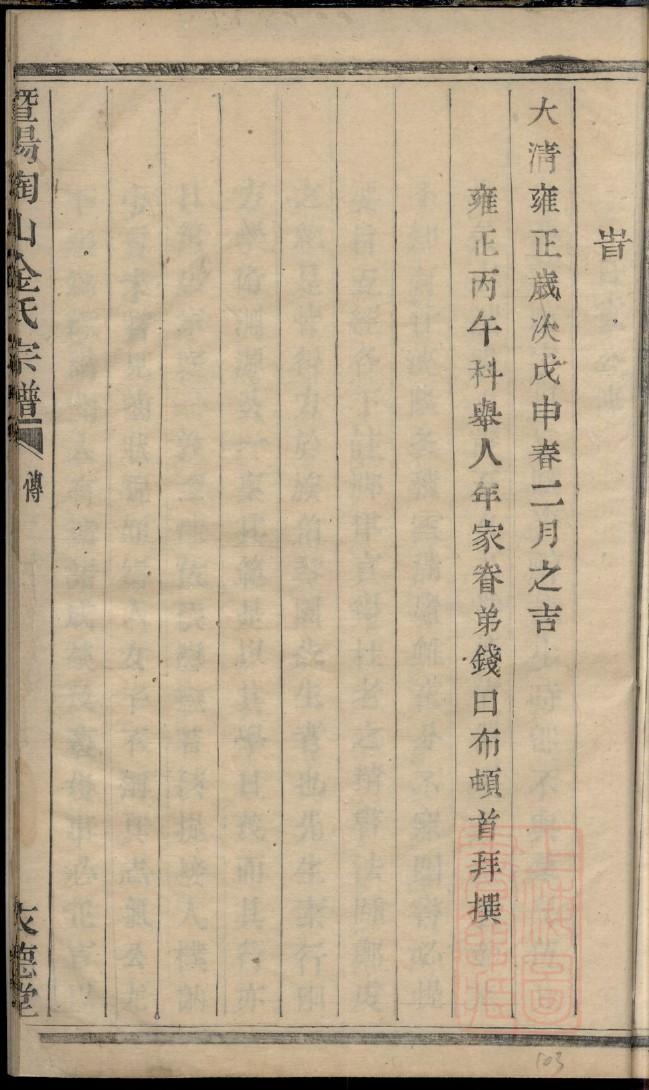 旹
大清雍正歲次戊申春二月之吉
雍正丙午科舉人年家眷弟錢日布頓首拜撰
暨陽陶山金氏宗譜
傳
文德堂
103